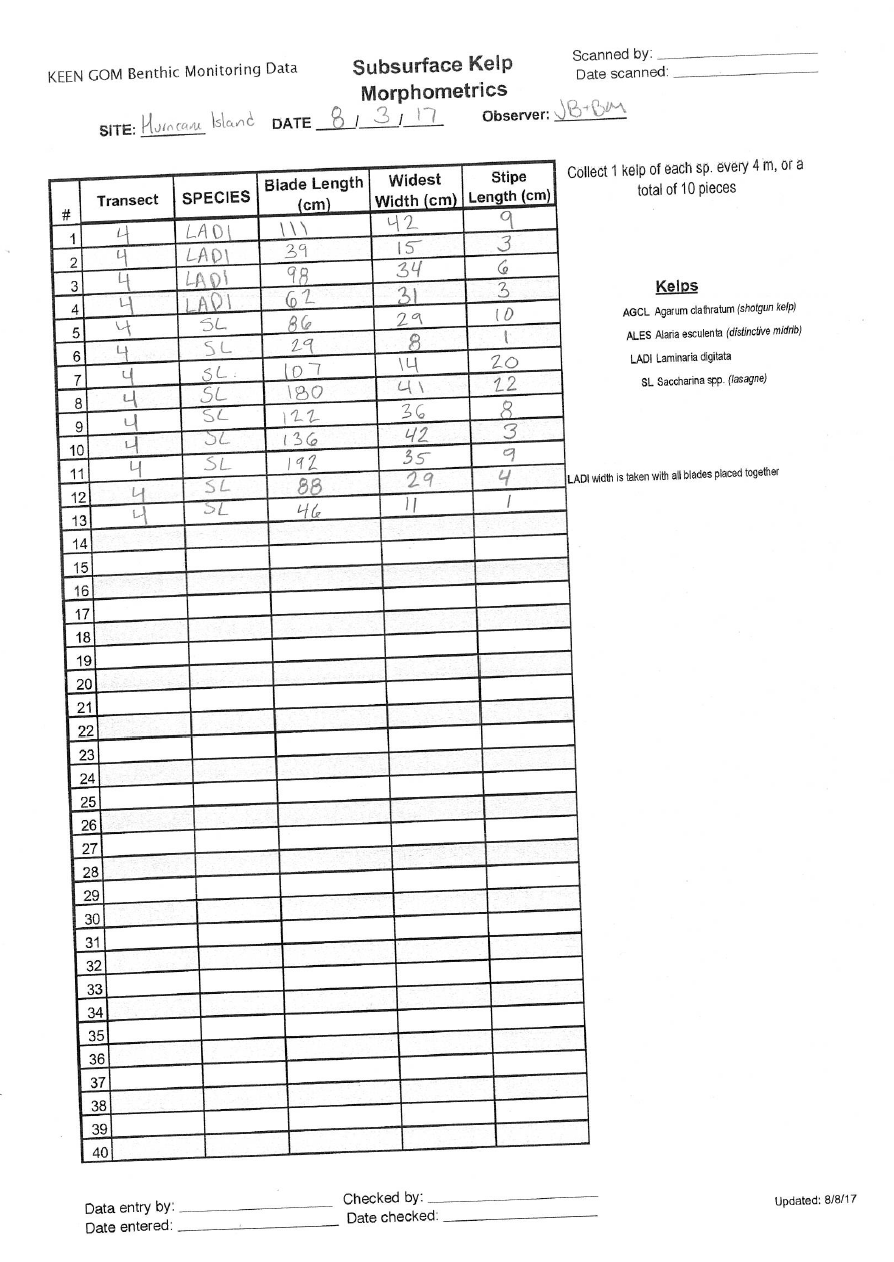 KEEN GOM Benthic Monitoring Data
Subsurface Kelp
Morphometrics
Scanned by:
Date scanned:
SITE: Hurricane Island DATE 8 / 3 / 17 Observer: JB+BM
# Transect SPECIES Blade Length (cm) Widest Width (cm) Stipe Length (cm)
1 4 LADI 111 42 9
2 4 LADI 39 15 3
3 4 LADI 98 34 6
4 4 LADI 62 31 3
5 4 SL 86 29 10
6 4 SL 29 8 1
7 4 SL. 107 14 20
8 4 SL 180 41 22
9 4 SL 122 36 8
10 4 SL 136 42 3
11 4 SL 192 35 9
12 4 SL 88 29 4
13 4 SL 46 11 1
14
15
16
17
18
19
20
21
22
23
24
25
26
27
28
29
30
31
32
33
34
35
36
37
38
39
40
Collect 1 kelp of each sp. every 4 m, or a
total of 10 pieces
Kelps
AGCL Agarum clathratum (shotgun kelp)
ALES Alaria esculenta (distinctive midrib)
LADI Laminaria digitata
SL Saccharina spp. (lasagne)
LADI width is taken with all blades placed together
Data entry by:
Date entered:
Checked by:
Date checked:
Updated: 8/8/17